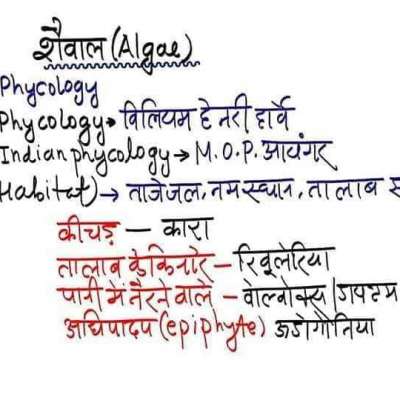 शैवाल (Algae)
Phycology
Phycology → विलियम हेनरी हार्वे
Indian phycology → M.O.P. आयंगर
Habitat) → ताजेजल, नमस्थान, तालाब
कीचड़ — कारा
तालाब के किनारे — रिवुलेरिया
पानी में तैरने वाले — वोल्वोक्स /
अधिपादप (epiphyte) ऊडोगोनिया